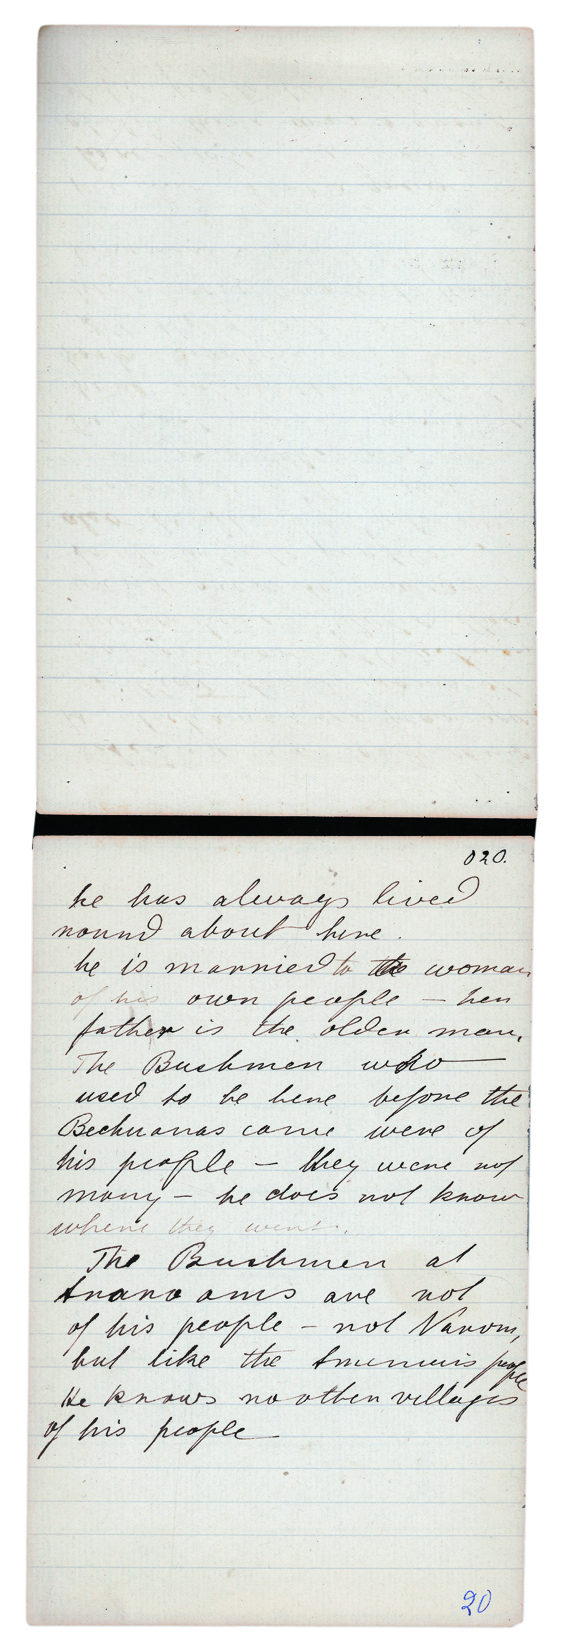 020.
he has always lived
round about here.
he is married to the woman
of his own people – her
father is the older man.
The Bushmen who
used to be here before the
Bechuanas came were of
his people – they were not
many – he does not know
where they went.
The Bushmen at
are not
of his people – not Narons,
but like the people
He knows no other villages
of his people
20